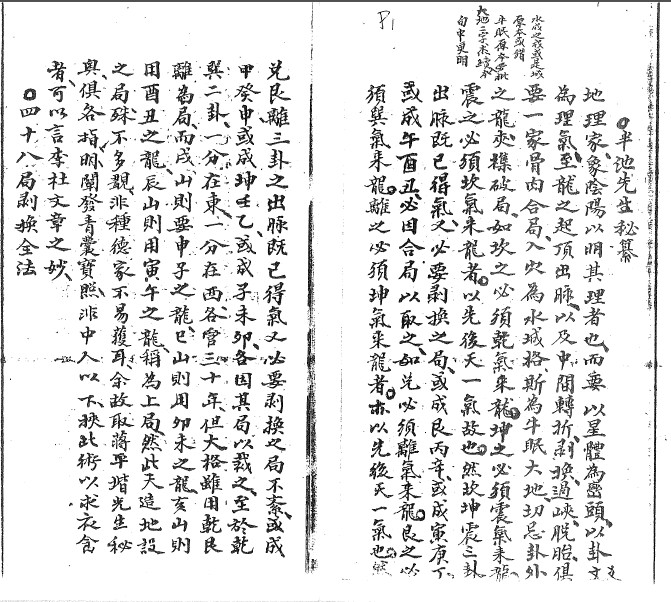 P1
水城之城或是域
原本或錯
牛眠原本要批
大地二字求續衣
向中更明
○半池先生秘纂
地理家象陰陽以明其理者也而要以星體為巒頭以卦爻
為理氣至龍之起頂出脉以及中間轉折剥換過峽脱胎俱
要一家骨肉合局入穴為水城格斯為牛眠大地切忌卦外
之龍夾襍破局如坎之必須乾氣来龍坤之必須震氣来龍
震之必須坎氣来龍者以先後天一氣故也然坎坤震三卦
出脉既已得氣又必要剥換之局或成艮丙辛或成寅庚丁
或成午酉丑必因合局以取之如兑必須離氣来龍艮之必
須巽氣来龍離之必須坤氣来龍者亦以先後天一氣也然
兑艮離三卦之出脉既已得氣又必要剥換之局不紊或成
甲癸申或成坤壬乙或成子未卯各因其局以裁之至於乾
巽二卦一分在東一分在西各管三十年但大格雖用乾艮
離為局而戌山則要申子之龍巳山則用卯未之龍亥山則
用酉丑之龍辰山則用寅午之龍稱為上局然此天造地設
之局殊不多覯非種德家不易獲耳余故取蔣平堦先生秘
與俱各指明闡發青囊寶照非中人以下挾此術以求衣食
者可以言李社文章之妙
○四十八局剥換全法